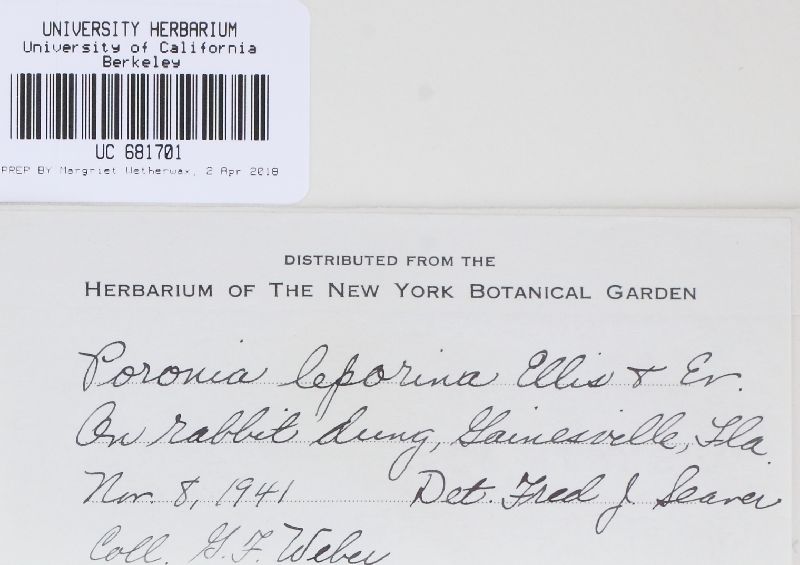 UNIVERSITY HERBARIUM
University of California
Berkeley
UC 681701
PREP BY Margriet Wetherwax, 2 Apr 2018
DISTRIBUTED FROM THE
HERBARIUM OF THE NEW YORK BOTANICAL GARDEN
Poronia leporina Ellis & Ev.
On rabbit dung, Gainesville, Fla.
Nov. 8, 1941 Det. Fred J. Seaver
Coll. G. F. Weber